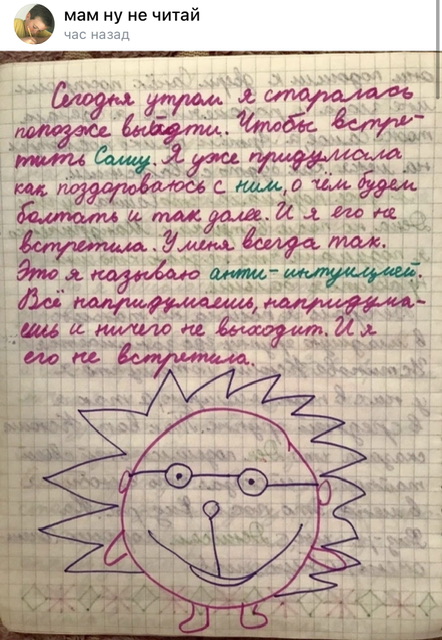 мам ну не читай
час назад
Сегодня утром я старалась
попозже выйдти. Чтобы встре-
тить Сашу. Я уже придумала
как поздороваюсь с ним, о чём будем
болтать и так далее. И я его не
встретила. У меня всегда так.
Это я называю анти-интуицией.
Всё напридумаешь, напридума-
ешь и ничего не выходит. И я
его не встретила.